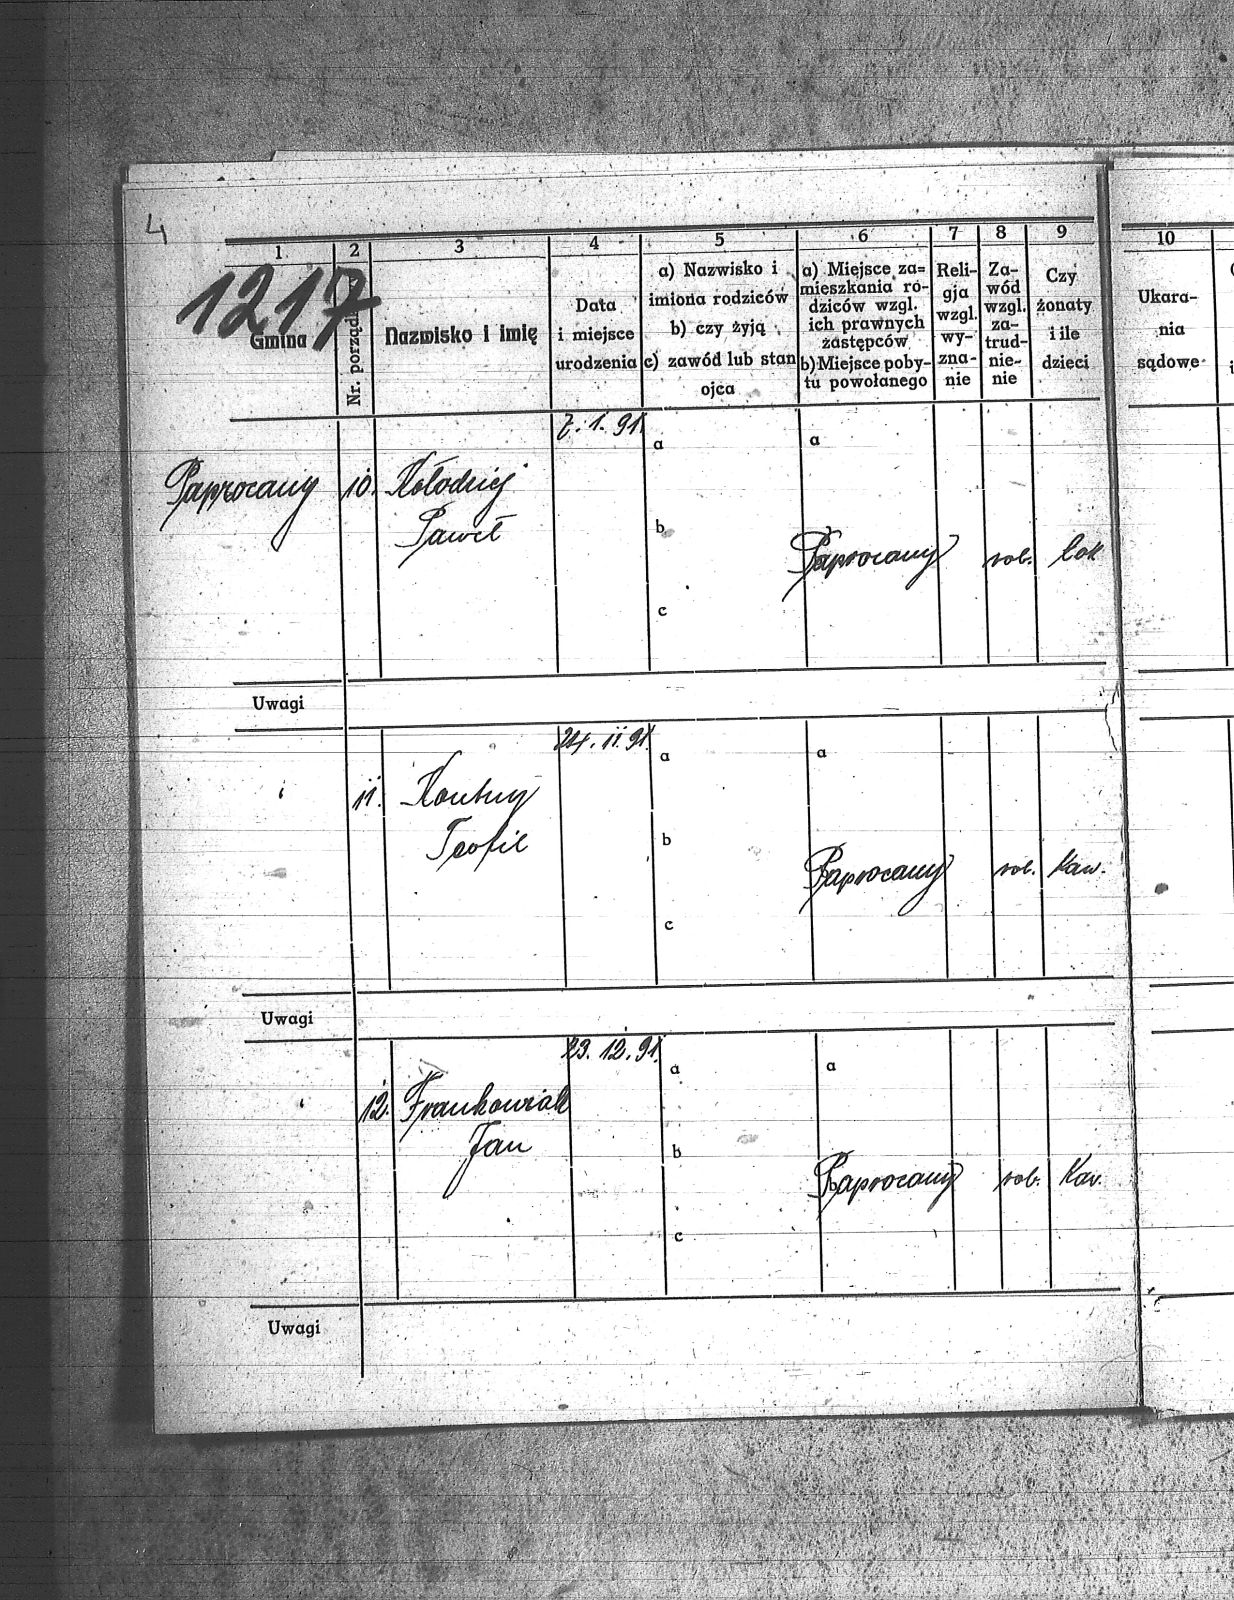 4
1217
1 2 3 4 5 6 7 8 9 10
Gmina
Nr. porządk
Nazwisko i imię
Data
i miejsce
urodzenia
a) Nazwisko i
imiona rodziców
b) czy żyją
c) zawód lub stan
ojca
a) Miejsce za=
mieszkania ro-
dziców wzgl.
ich prawnych
zastępców
b) Miejsce poby-
tu powołanego
Reli-
gja
wzgl.
wy-
zna-
nie
Za-
wód
wzgl.
za-
trud-
nie-
nie
Czy
żonaty
i ile
dzieci
Ukara-
nia
sądowe
7. 1. 91.
a a
Paprocany 10. Kołodziej
Paweł
b
Paprocany rob.
c
Uwagi
24. 11. 91.
a a
11. Kontny
Teofil
b
Paprocany rob. Kaw.
c
Uwagi
23. 12. 91.
a a
12. Frankowiak
Jan
b
Paprocany rob. Kav.
c
Uwagi